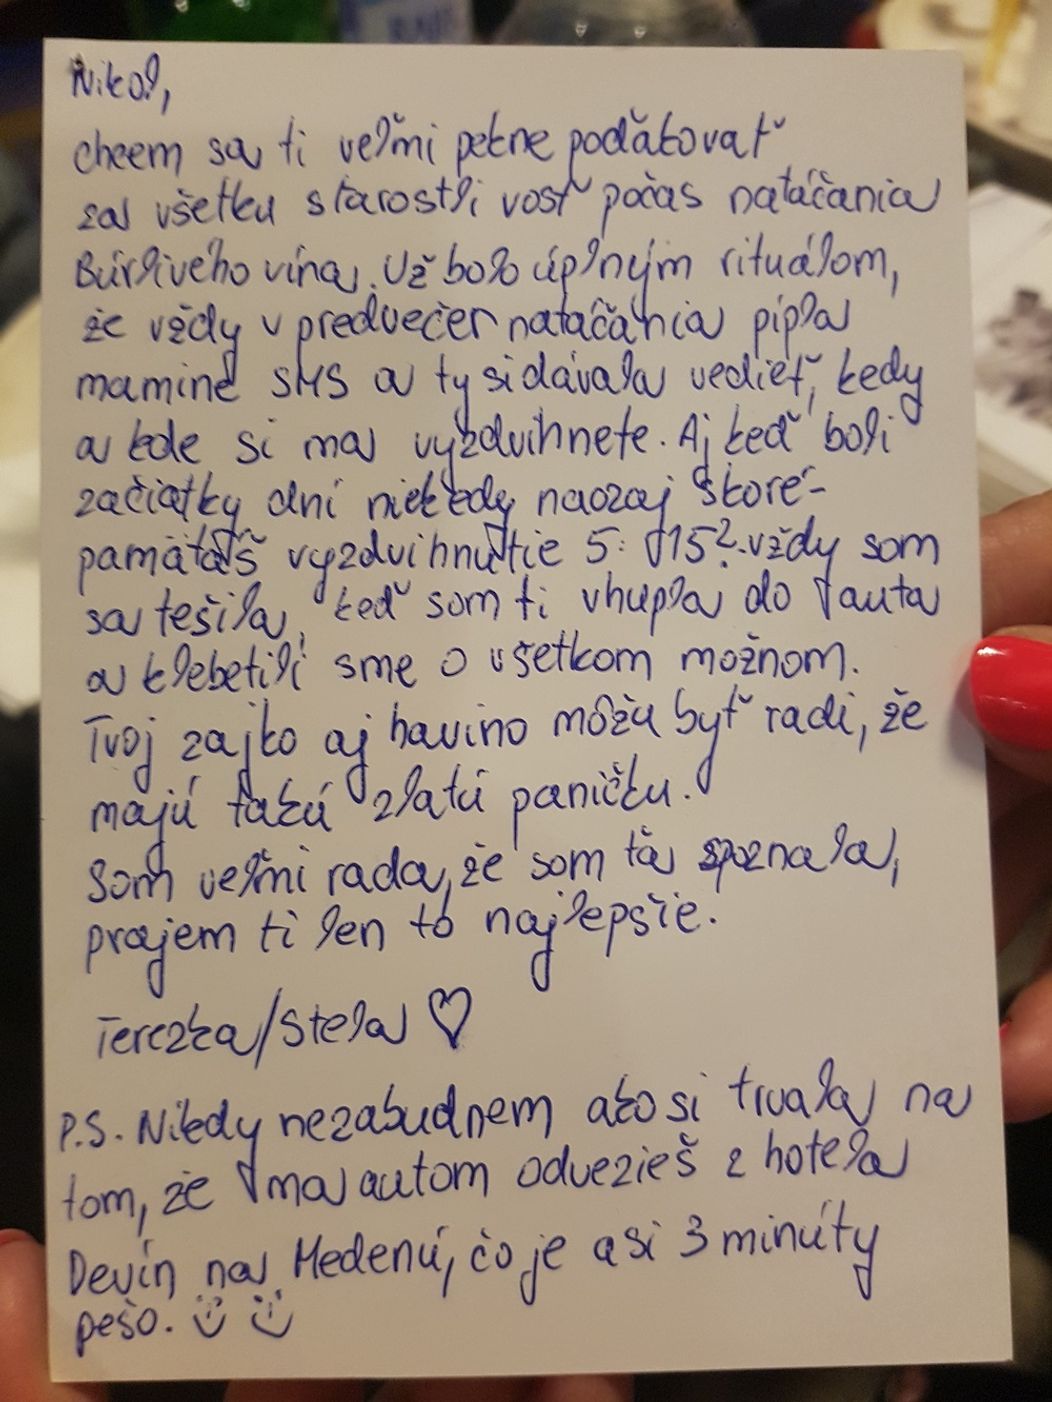 Nikol,
chcem sa ti veľmi pekne poďakovať
za všetku starostlivosť počas natáčania
Búrlivého vína. Už bolo úplným rituálom,
že vždy v predvečer natáčania pípla
mamine SMS a ty si dávala vedieť, kedy
a kde si ma vyzdvihnete. Aj keď boli
začiatky dní niekedy naozaj skoré-
pamätáš vyzdvihnutie 5:15? vždy som
sa tešila, keď som ti vhupla do auta
a klebetili sme o všetkom možnom.
Tvoj zajko aj havino môžu byť radi, že
majú takú zlatú paničku.
Som veľmi rada, že som ťa spoznala,
prajem ti len to najlepšie.
Terezka/Stela ♡
P.S. Nikdy nezabudnem ako si trvala na
tom, že ma autom odvezieš z hotela
Devín na Medenú, čo je asi 3 minúty
pešo. :) :)